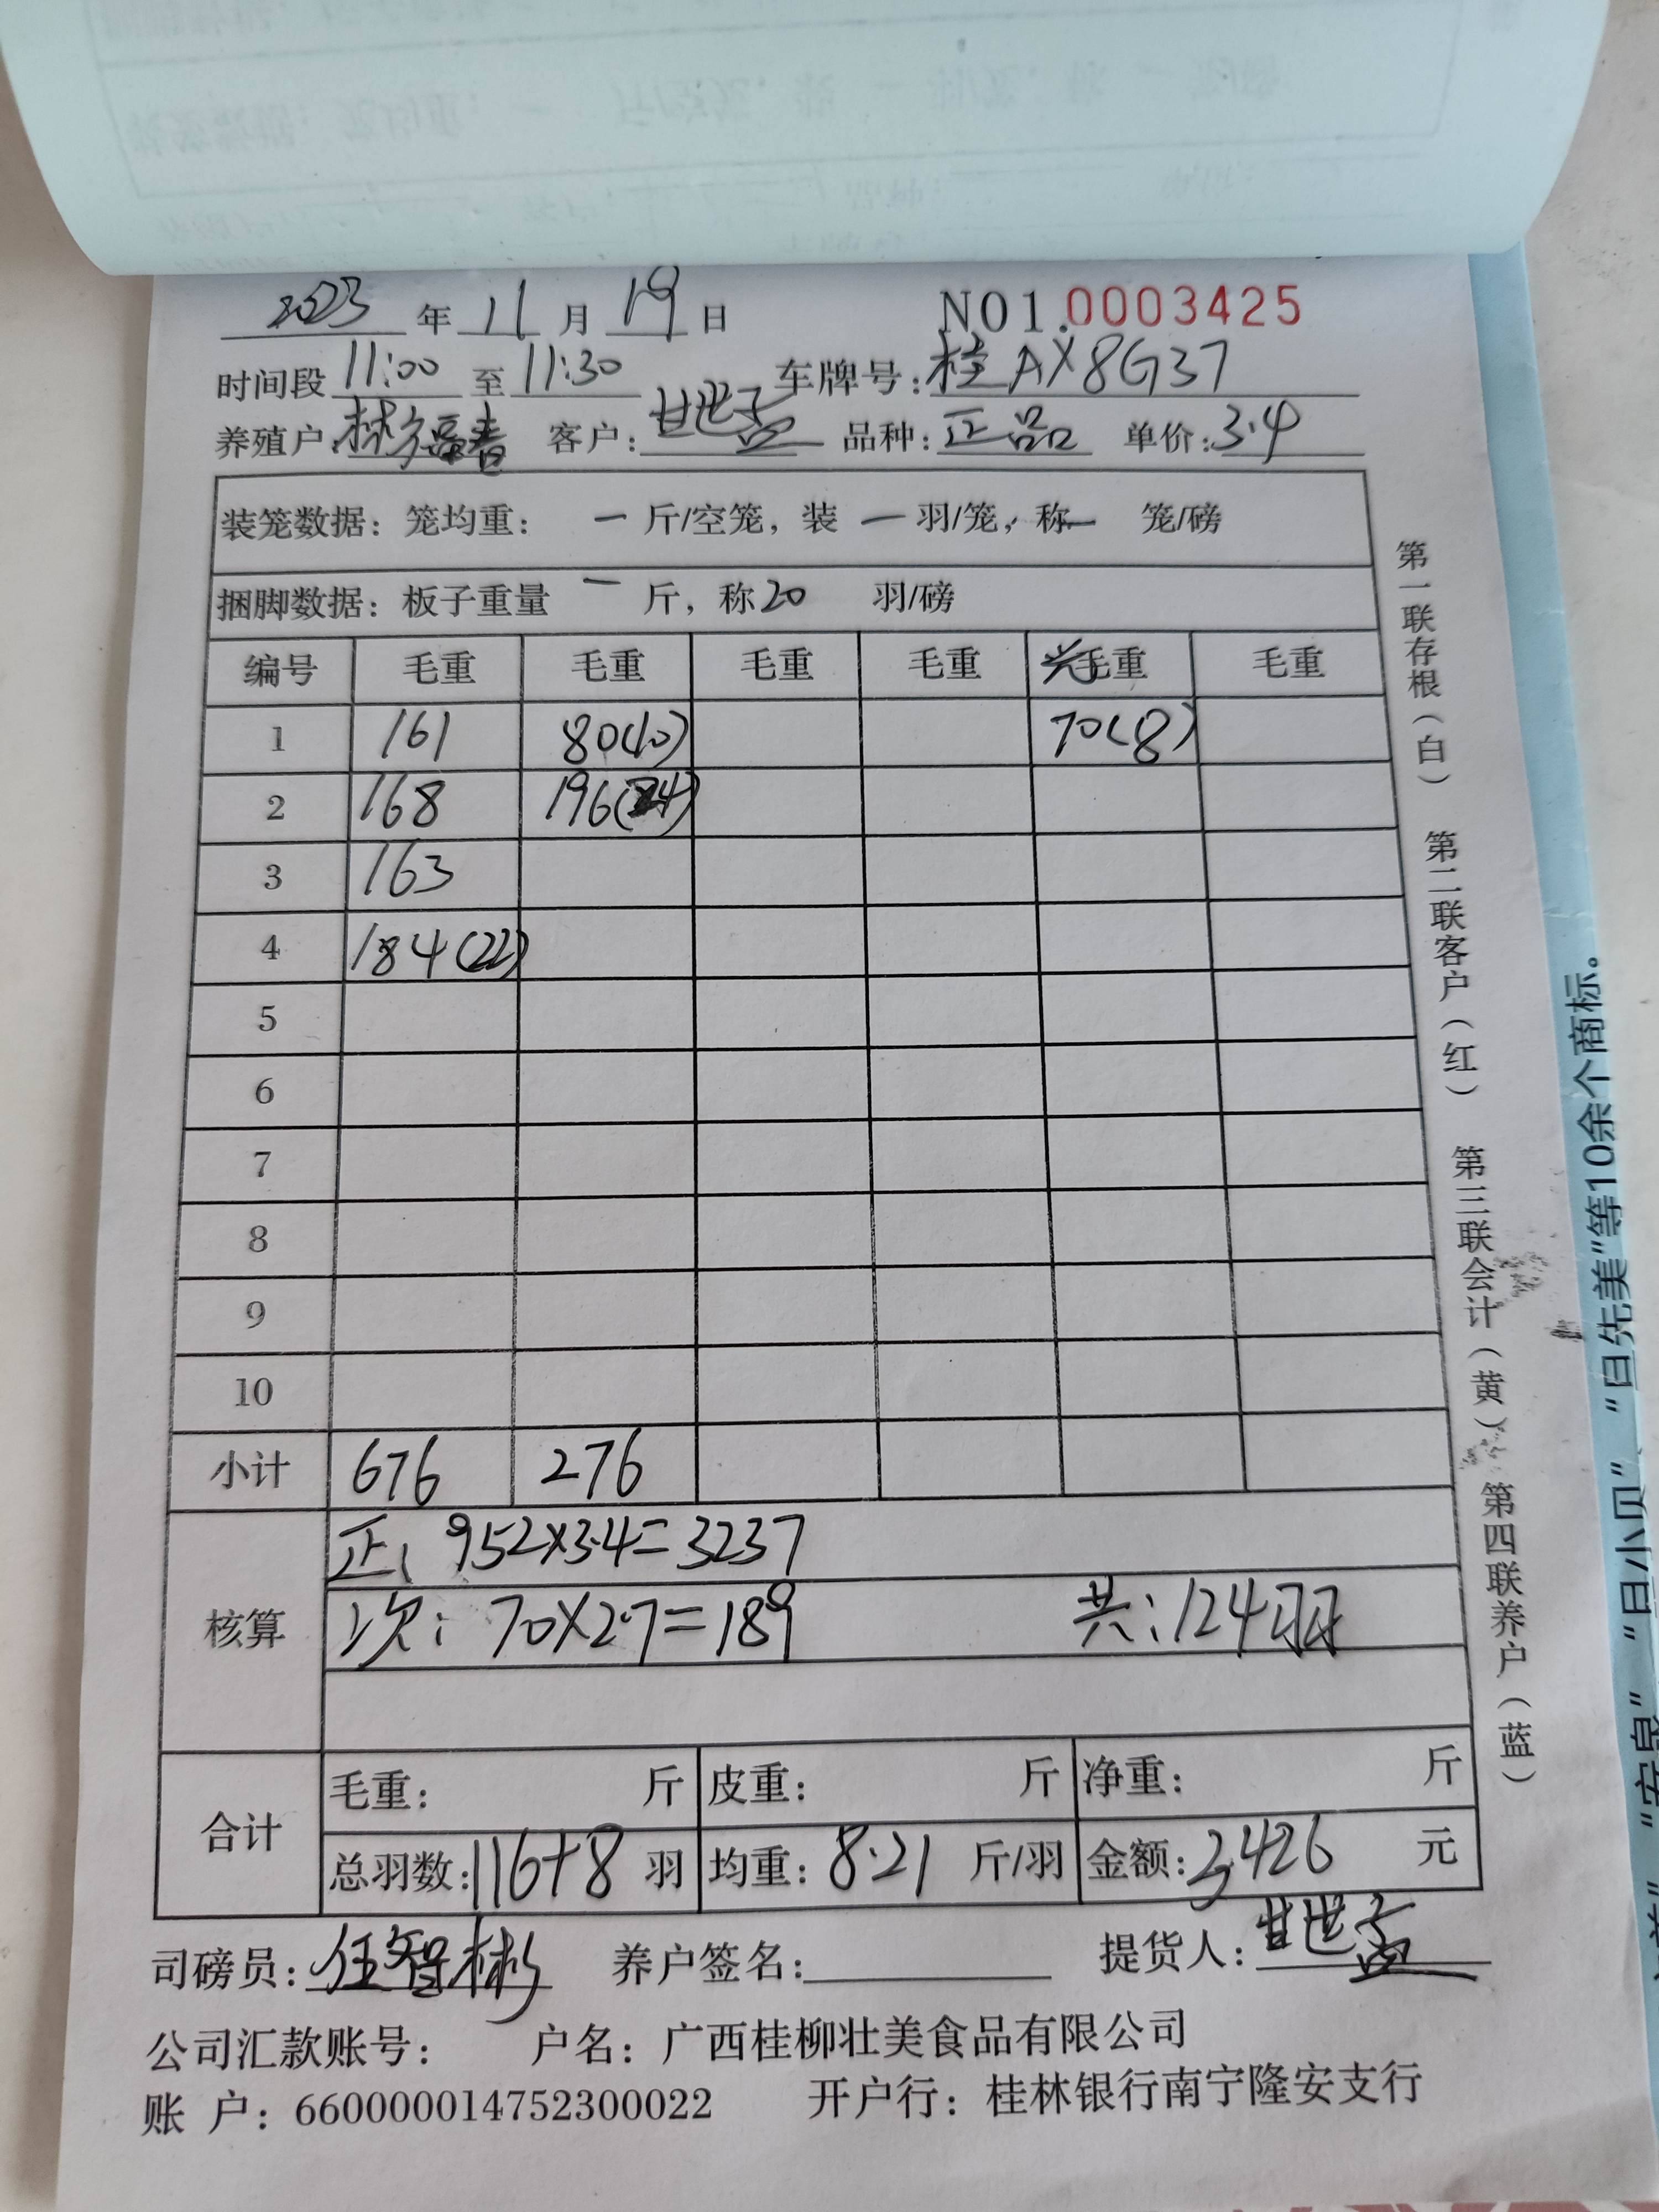 2023 年 11 月 19 日 NO1.0003425
时间段 11:00 至 11:30 车牌号:桂AX8G37
养殖户: 客户:甘世孟 品种:正品 单价:3.4
装笼数据: 笼均重: 一 斤/空笼, 装 一 羽/笼, 称 一 笼/磅
捆脚数据: 板子重量 一 斤, 称20 羽/磅
编号 毛重 毛重 毛重 毛重 毛重 毛重
1 161 80(10) 70(8)
2 168 196(24)
3 163
4 184(22)
5
6
7
8
9
10
小计 676 276
核算
正: 952×3.4=3237
次: 70×2.7=189 共:124羽
合计
毛重: 斤 皮重: 斤 净重: 斤
总羽数:116+8 羽 均重:8.21 斤/羽 金额:3426 元
司磅员:任智彬 养户签名: 提货人:甘世孟
公司汇款账号: 户名: 广西桂柳壮美食品有限公司
账 户: 660000014752300022 开户行: 桂林银行南宁隆安支行
第一联存根(白) 第二联客户(红) 第三联会计(黄) 第四联养户(蓝)
"日小贝" "日先美"等10余个商标。